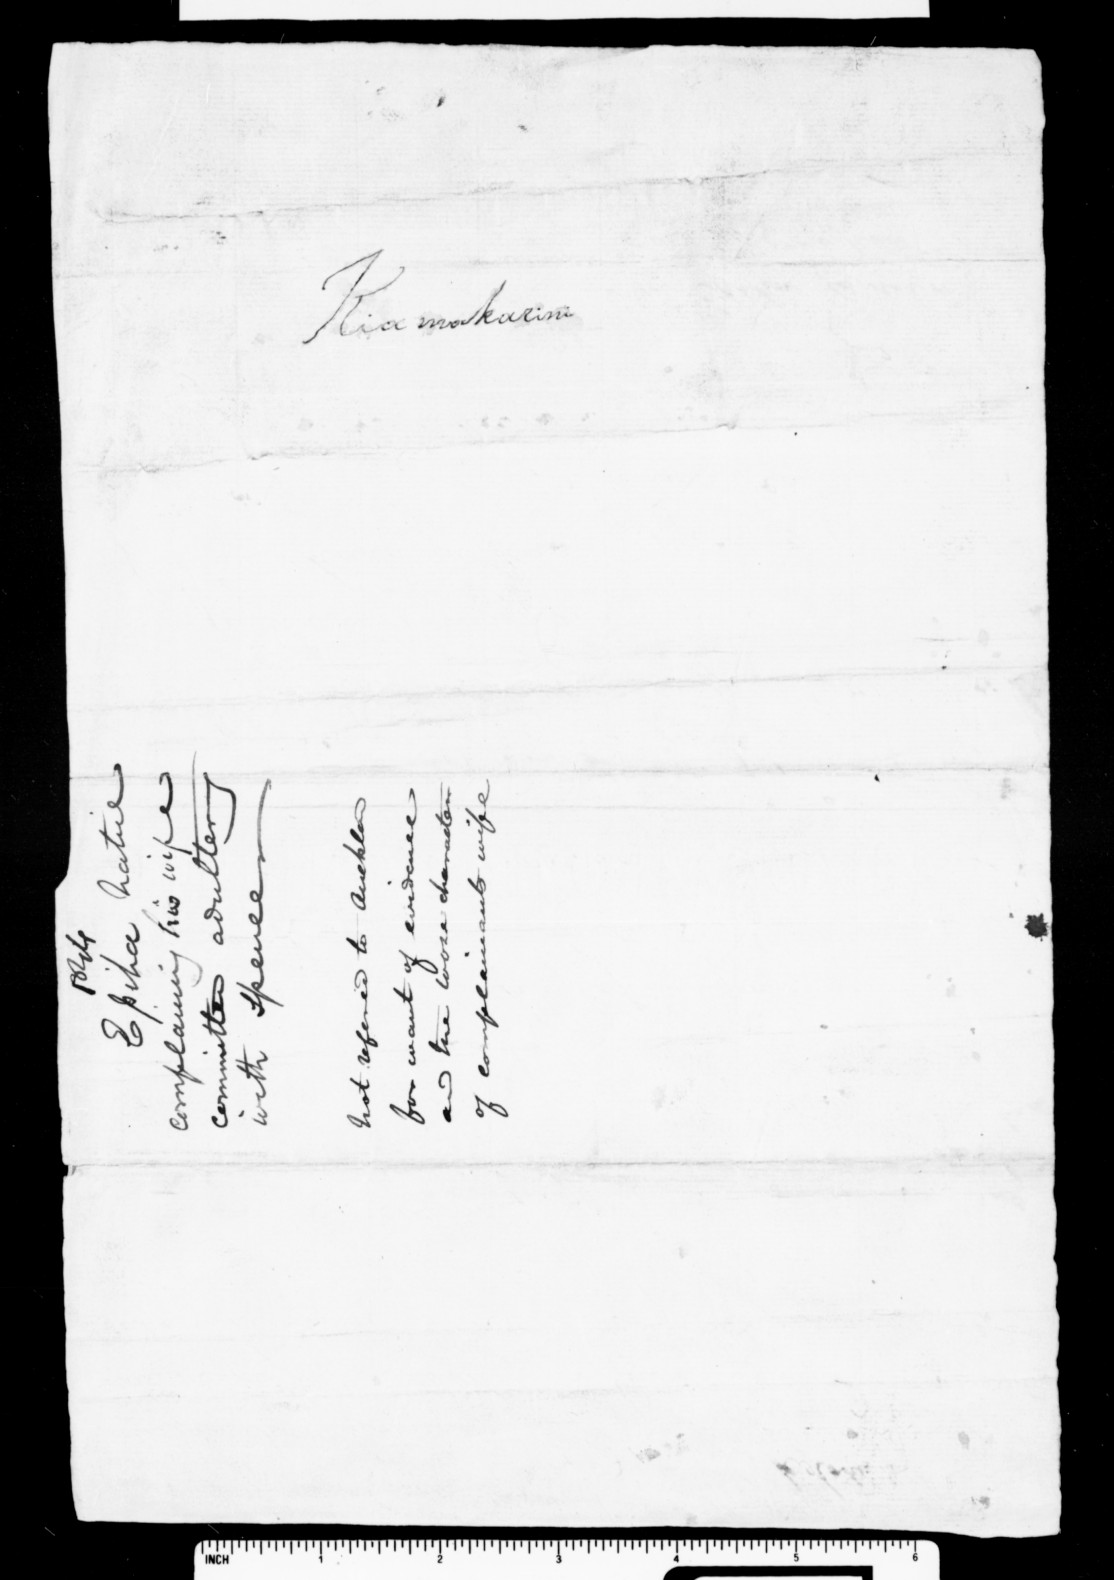 Kia makarini
Epiha Native
complaining his wife
committed adultery
with Spencer
Not refered to Auckln
for want of evidence
and the loose character
of complainants wife
INCH 1 2 3 4 5 6